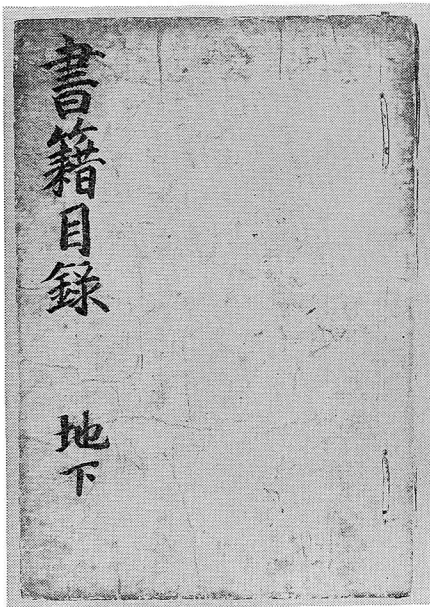 書籍目録 地下